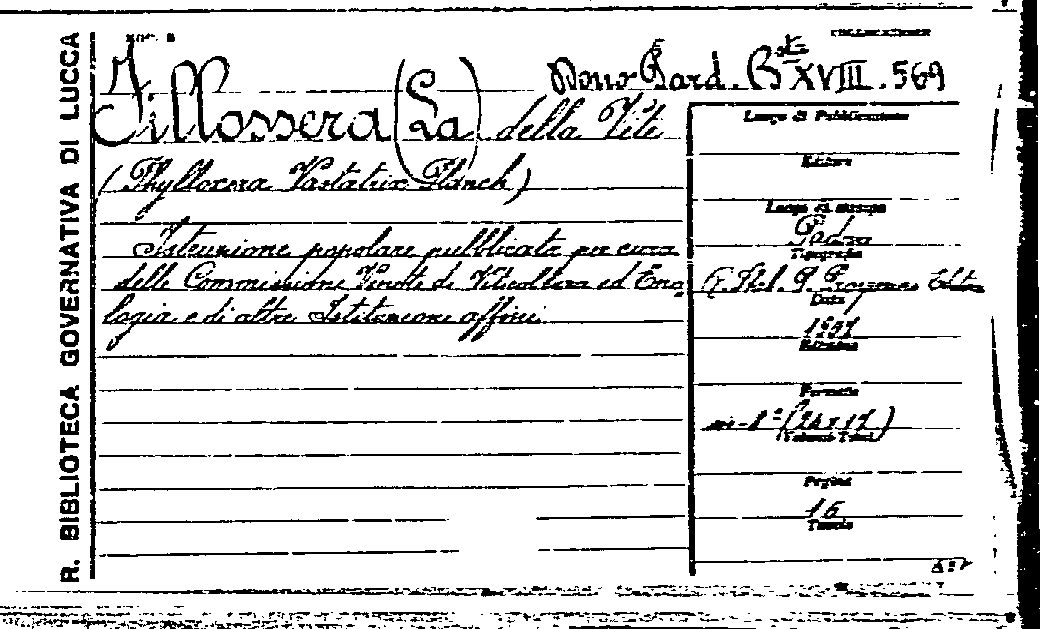 R. BIBLIOTECA GOVERNATIVA DI LUCCA
COLLOCAZIONE
Dono Bard. Bta XVIII. 569
Fillossera (La) della Vite
(Phylloxera Vastatrix Planch)
Istruzione popolare pubblicata per cura
delle Commissione di Viticoltura ed Eno
logia e di altre Istituzione affini.
Luogo di Pubblicazione
Editore
Luogo di stampa
Padova
Tipografia
R. Stab. P. Prosperini Edit.
Data
Edizione
Formato
in-8° (24x17)
Pagine
16
Tavole